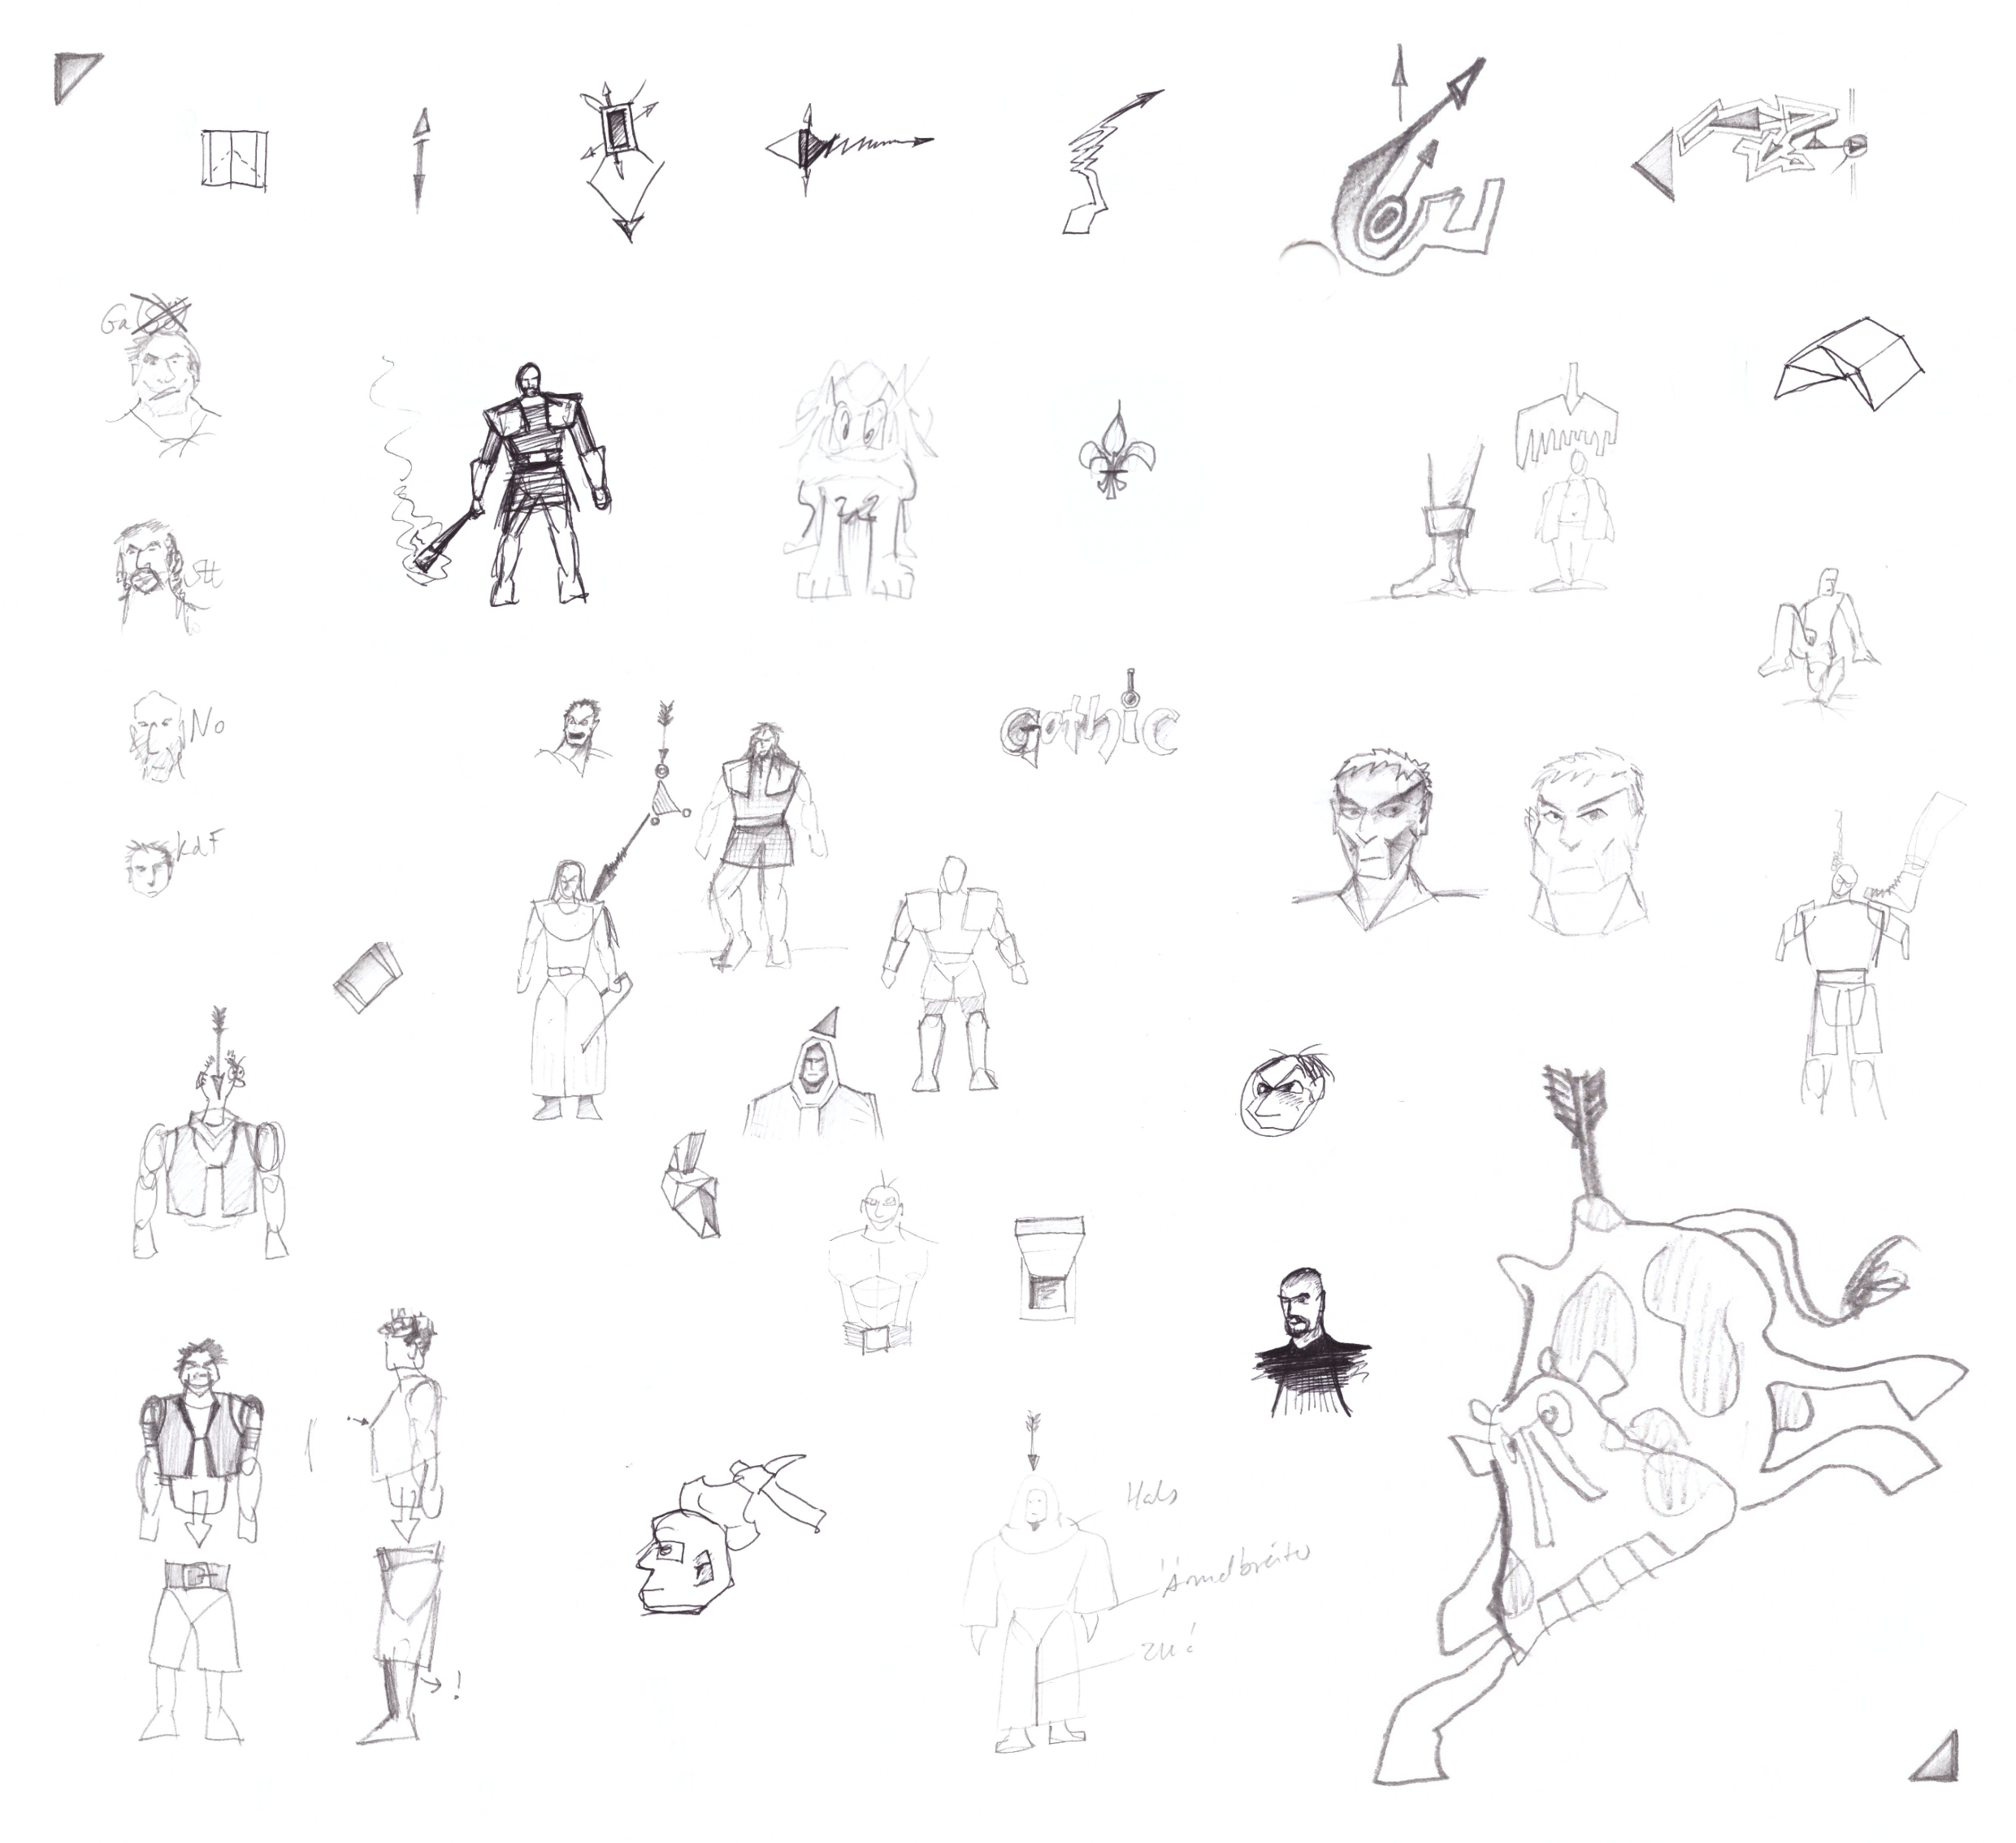 Ga
Stt
No
KdF
Gothic
Hals
Ärmelbreite
zu!
!